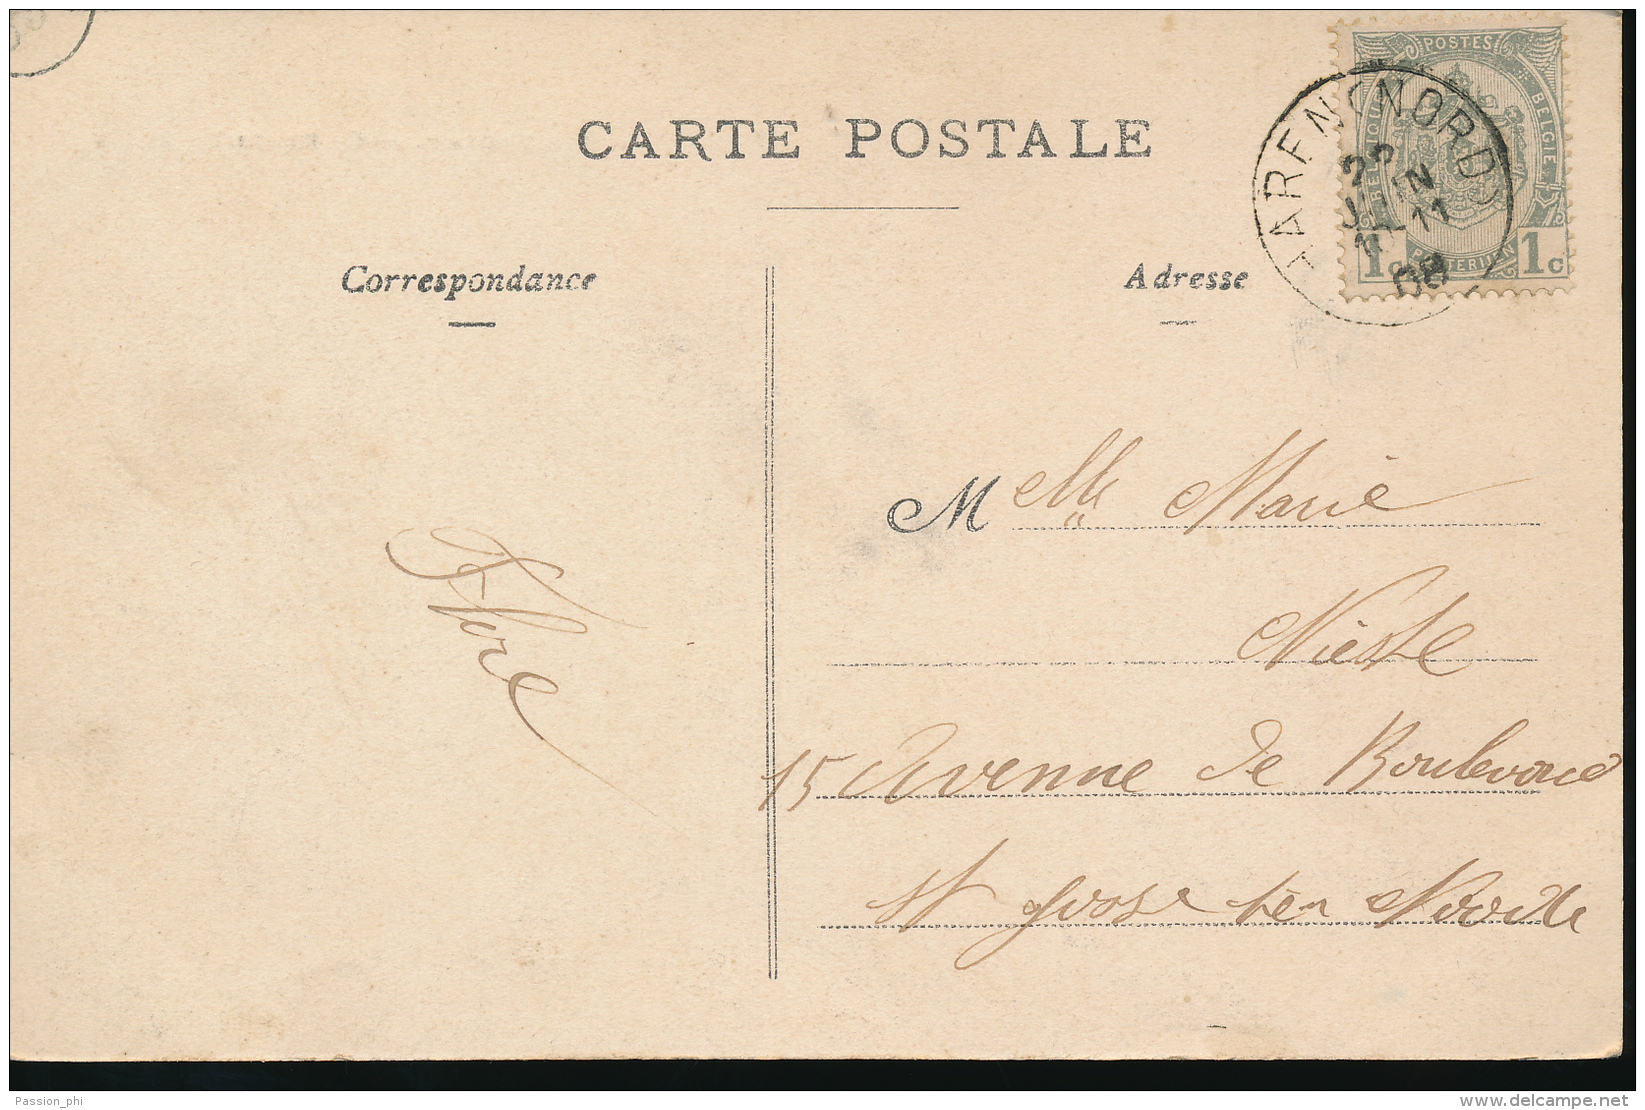 CARTE POSTALE
Correspondance
Adresse
POSTES
BELGIQUE
BELGIE
POSTERIJEN
1c 1c
HAREN (NORD)
22
JUIN
10 11
08
Melle Marie
15 Avenue de Boulevard
St Josse ten Noode
Passion_phi
www.delcampe.net